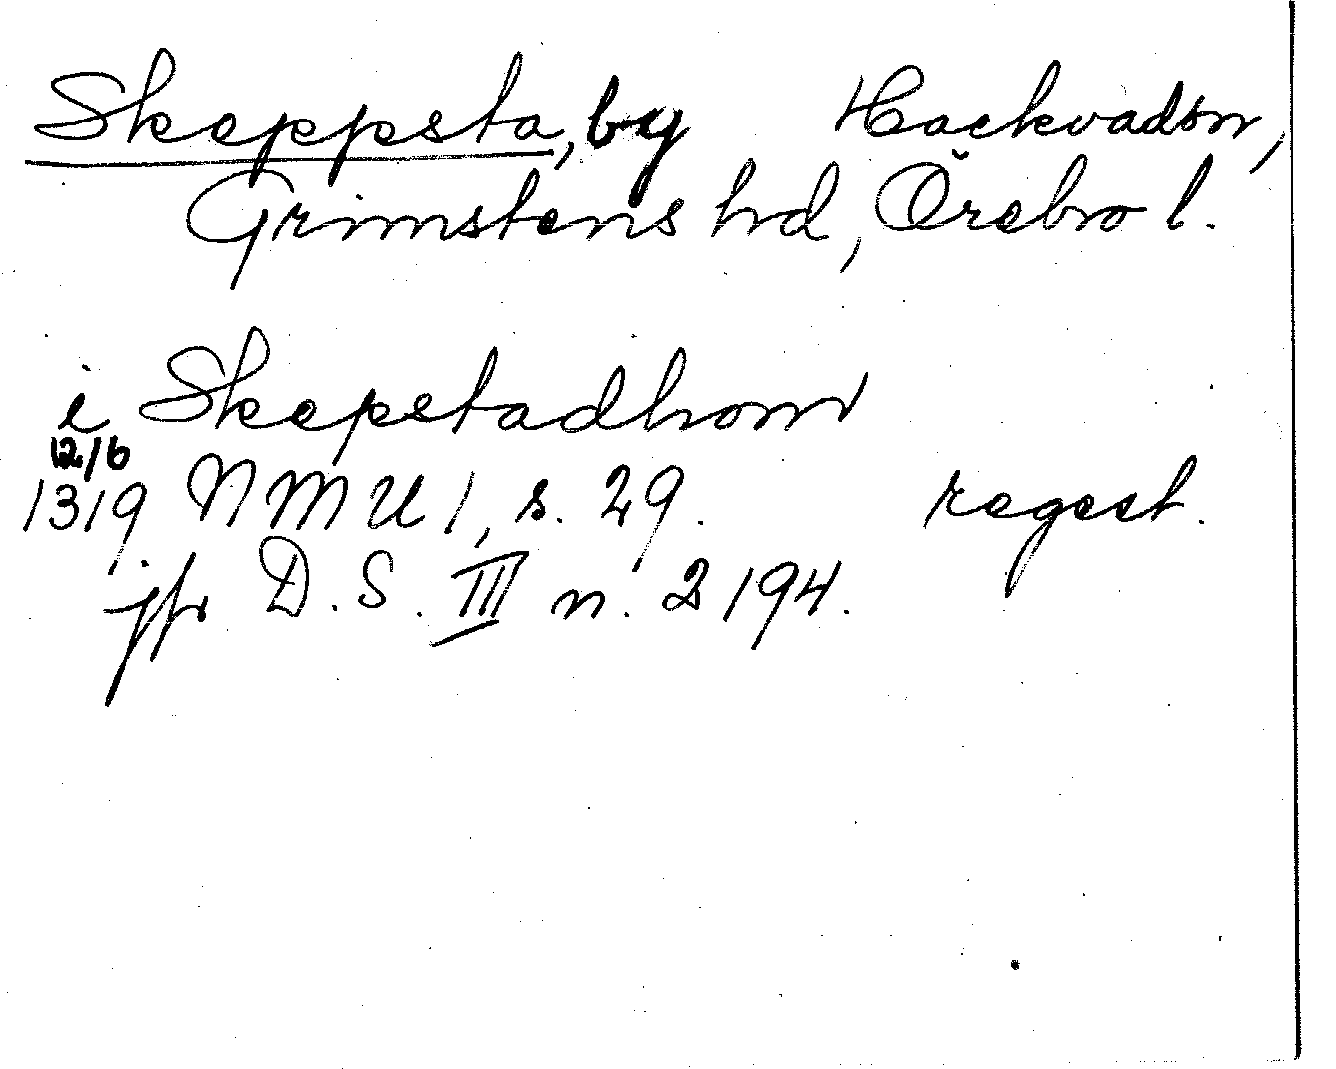 Skeppsta, by Hackvadsn,
Grimstens hd, Örebro l.
i Skepstadhom
12/6
1319 NMU 1, s. 29. regest.
jfr D. S. III n. 2194.